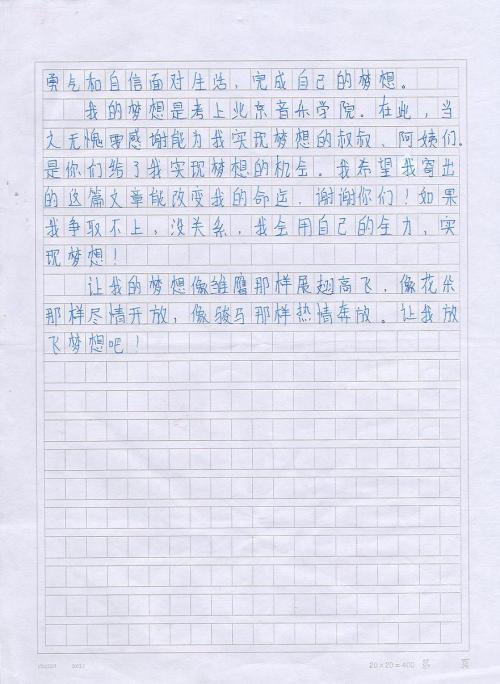 勇气和自信面对生活，完成自己的梦想。
我的梦想是考上北京音乐学院。在此，当
之无愧要感谢能为我实现梦想的叔叔、阿姨们。
是你们给了我实现梦想的机会。我希望我寄出
的这篇文章能改变我的命运，谢谢你们！如果
我争取不上，没关系，我会用自己的全力，实
现梦想！
让我的梦想像雏鹰那样展翅高飞，像花朵
那样尽情开放，像骏马那样热情奔放。让我放
飞梦想吧！
20×20=400 第 页